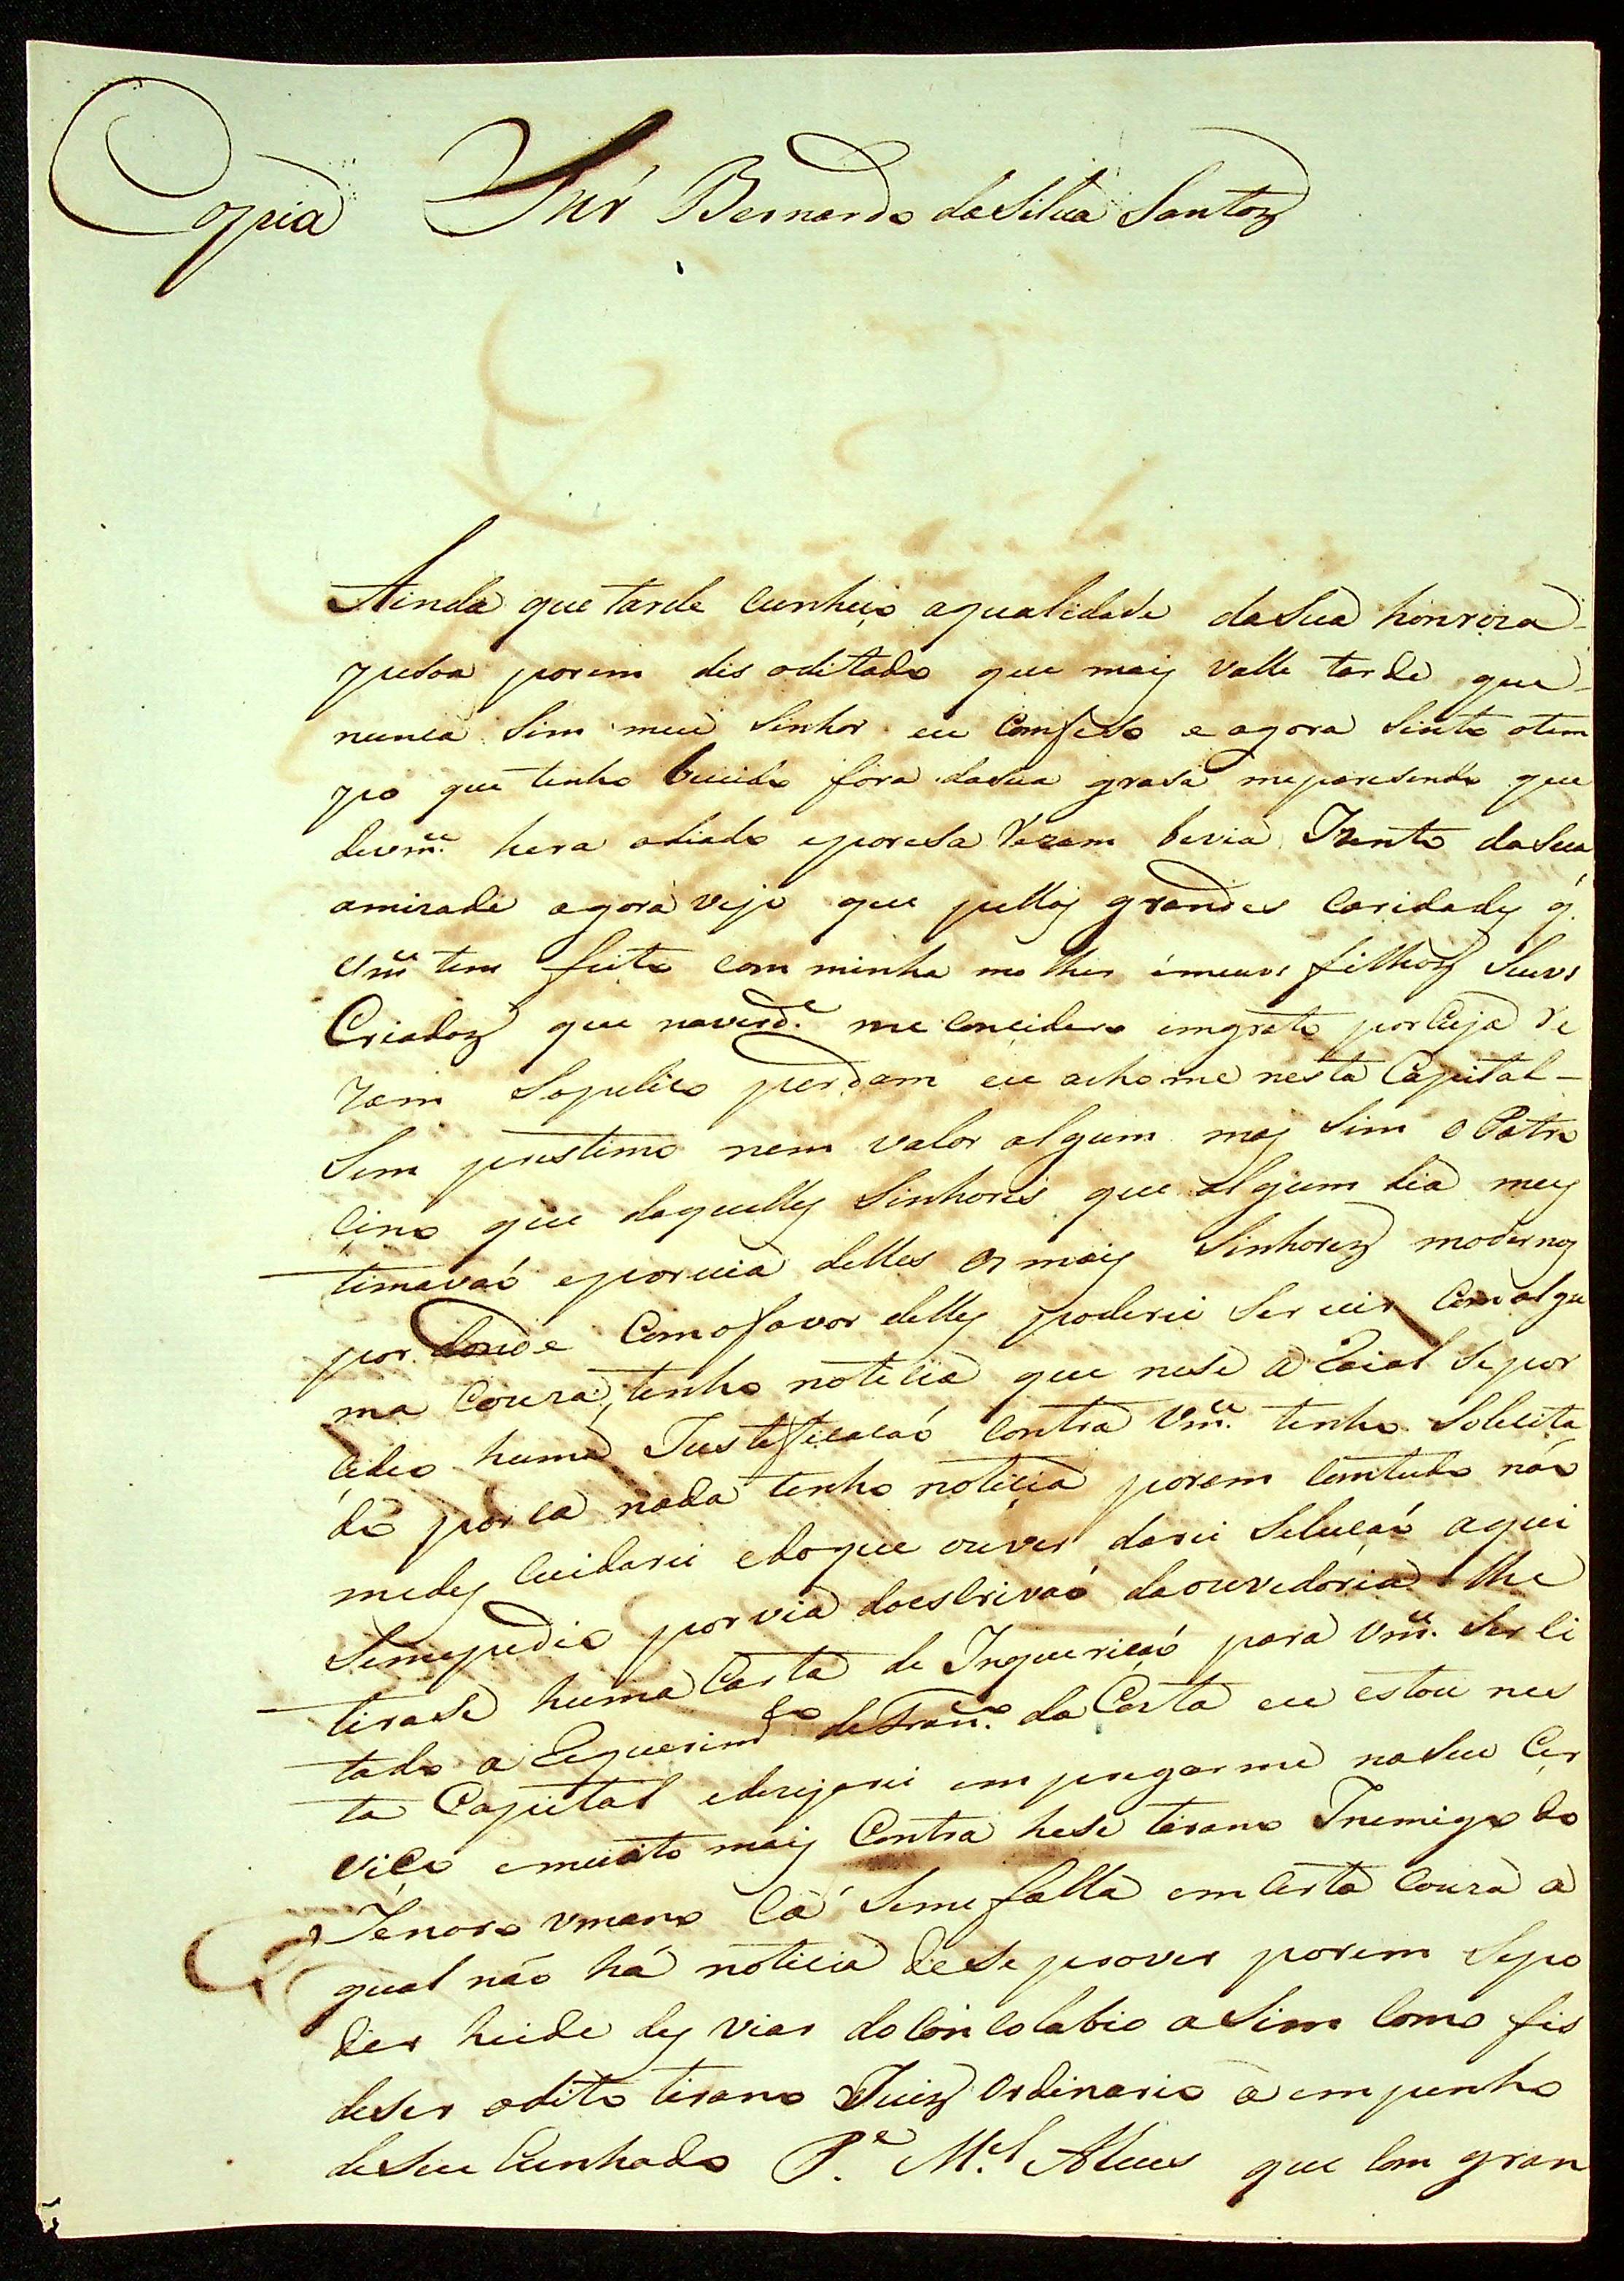 Copia Snr Bernardo da Silva Santoz
Ainda que tarde cunheso aqualidade da Sua honroza
pesoa porem dis oditado que mais valle tarde que
nunca Sim meu Sinhor eu Comfeso e agora Sinto otem
po que tenho bivido fora dasua grasa meparesendo que
devm.ce hera odiado eporesa Rezam bevia Izento da Sua
amizade agora vejo que pellas grandes Caridades q.
Vm.ce tem feito com minha molher émeus filhoz Seus
Criadoz que naverd.e me Concidero imgrato por Cuja Re
zam Sopelico perdam eu achome nesta Capital
Sem prestimo nem valor algum mas Sim o Patro
cino que daquelles Sinhores que algum dia mes
timavaó eporvia delles os mais Sinhorez modernos
por donde Com ofavor delles poderei Servir Com algu
ma Couza, tenho noticia que nese a Raial Sepor
cedeo huma Justeficacaó Contra Vm.ce tenho Solicita
do por ca nada tenho noticia porem Comtudo náo
medes cuidarei edoque ouver darei Solucaó aqui
Semepedio porvia doescrivaó daouvedoria lhe
tirase huma Carta de Inquericaó para Vm.ce Ser Ci
tado a Requerim.to de da Corta eu estou nes
ta Capital edezejarei em pregarme no Seu Cer
viço emuito mais Contra hese tirano Inemigo do
Jenoro umano Cá Seme falla em Certa Couza a
qual náo há noticia de Se prover porem Sepo
der heide des viar do Comcolabio a Sim Como fis
deser odito tirano Juiz Ordinario a empenho
de Seu Cunhado P.e M.el Alves que Com gran